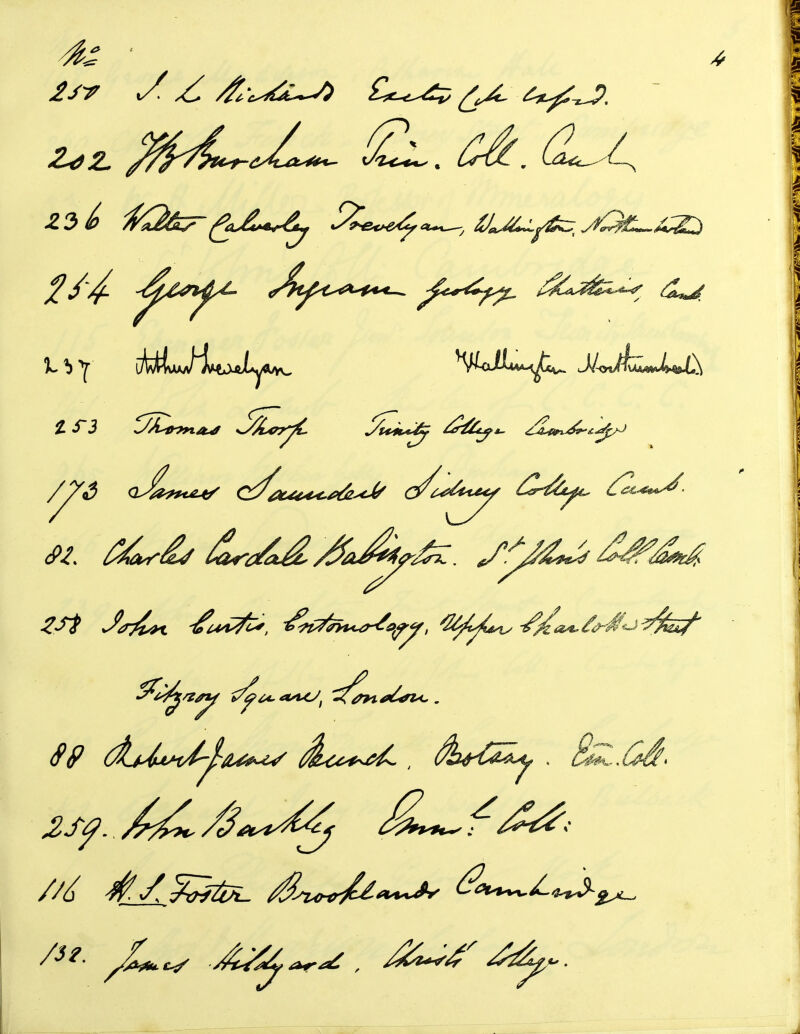 No
4
250 J. L Richards Exeter Col Oxford.
202 TB Burcham Trin. Coll. Camb
236 Walter Calverley Trevelyan, Wallington, Northumberland
254 George Ingram Geology Chatteris, Camb.
237 Arthur Trevelyan Wallington Northumberld
253 Thomas Thorp Trinity College Cambridge
173 James Saunders Sidney College Camb.
82. Charles Cardale Babington. St John's Coll. Camb.
258 John Curtis, Entomology, Upper Charlotte Street
Fitzroy Square, London.
88 Robert James Bunch, Botany. Em. Coll.
259. John Barkley Emml. Coll:
116 S. Foster Brooklands Cambridge
132. James Hildyard, Christ's College.